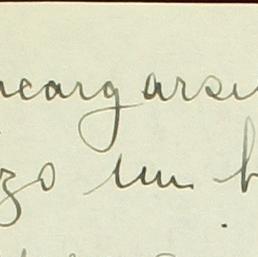 ncargarse
zo un b